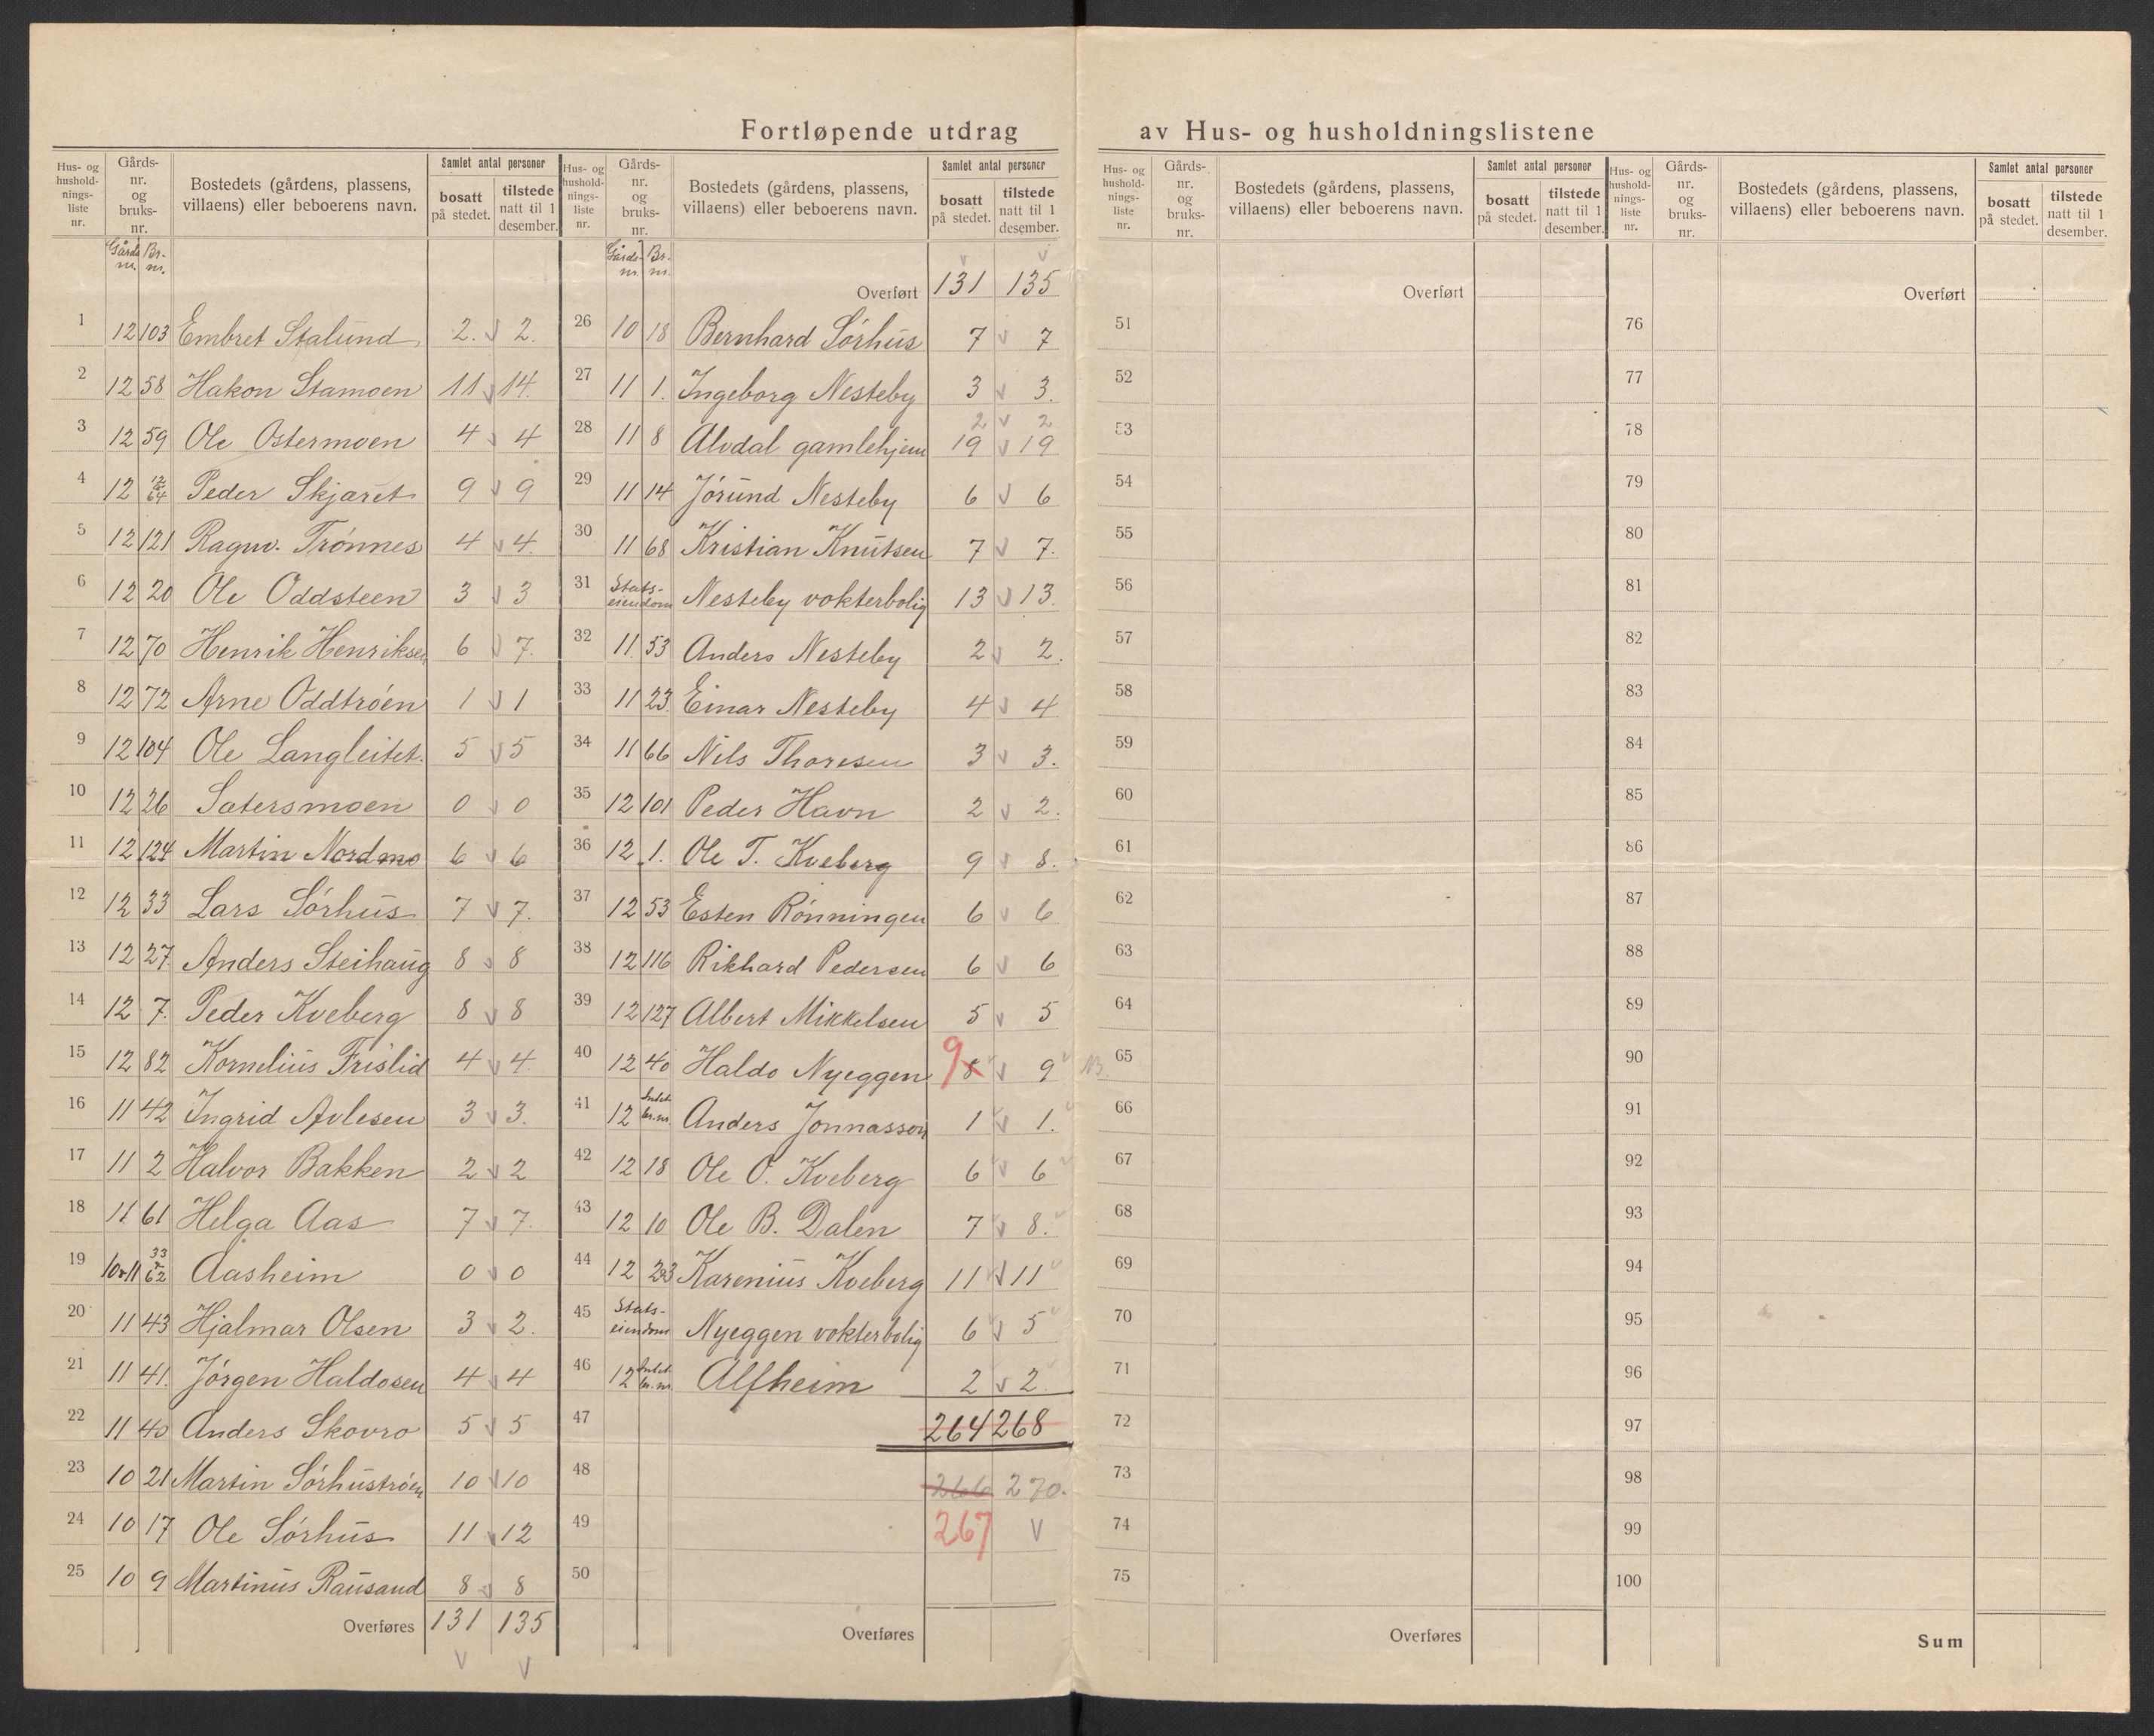 Fortløpende utdrag av Hus- og husholdningslistene
Hus- og husholdnings-liste nr. | Gårds-nr. og bruks-nr. | Bostedets (gårdens, plassens, villaens) eller beboerens navn. | Samlet antal personer | bosatt på stedet. | tilstede natt til 1 desember.
Gårds nr. | Br-nr.
1 | 12 | 103 | Embret Stalund | 2. v 2.
2 | 12 | 58 | Hakon Stamoen | 11 v 14.
3 | 12 | 59 | Ole Ostermoen | 4 v 4
4 | 12 | 12 & 64 | Peder Skjæret | 9 v 9
5 | 12 | 121 | Ragnv. Trønnes | 4 v 4.
6 | 12 | 20 | Ole Oddsteen | 3 v 3
7 | 12 | 70 | Henrik Henriksen | 6 v 7.
8 | 12 | 72 | Arne Oddtrøen | 1 v 1
9 | 12 | 104 | Ole Langleitet. | 5 v 5
10 | 12 | 26 | Sætersmoen | 0 v 0
11 | 12 | 124 | Martin Nordmo | 6 v 6
12 | 12 | 33 | Lars Sørhus | 7 v 7.
13 | 12 | 27. | Anders Steihaug | 8 v 8
14 | 12 | 7. | Peder Kveberg | 8 v 8
15 | 12 | 82 | Kornelius Frislid | 4 v 4.
16 | 11 | 42 | Ingrid Avlesen | 3 v 3.
17 | 11 | 2 | Halvor Bakken | 2 v 2
18 | 11 | 61 | Helga Aas | 7 v 7.
19 | 10 & 11 | 33 & 62 | Aasheim | 0 v 0
20 | 11 | 43 | Hjalmar Olsen | 3 v 2.
21 | 11 | 41. | Jørgen Haldosen | 4 v 4
22 | 11 | 40 | Anders Skovro | 5 v 5
23 | 10 | 21 | Martin Sørhustrøen | 10 v 10
24 | 10 | 17 | Ole Sørhus | 11 v 12
25 | 10 | 9 | Martinus Rausand | 8 v 8
Overføres | 131 | 135
v v
Hus- og husholdnings-liste nr. | Gårds-nr. og bruks-nr. | Bostedets (gårdens, plassens, villaens) eller beboerens navn. | Samlet antal personer | bosatt på stedet. | tilstede natt til 1 desember.
Gårds-nr. | Br.-nr. | v v
Overført | 131 | 135
26 | 10 | 18 | Bernhard Sørhus | 7 v 7
27 | 11 | 1. | Ingeborg Nesteby | 3 v 3.
2 v 2
28 | 11 | 8 | Alvdal gamlehjem | 19 v 19
29 | 11 | 14 | Jørund Nesteby | 6 v 6
30 | 11 | 68 | Kristian Knutsen | 7 v 7.
31 | Stats-eiendom | Nesteby vokterbolig | 13 v 13.
32 | 11. | 53 | Anders Nesteby | 2 v 2.
33 | 11 | 23. | Einar Nesteby | 4 v 4
34 | 11 | 66 | Nils Thoresen | 3 v 3.
35 | 12 | 101 | Peder Havn | 2 v 2.
36 | 12 | 1. | Ole T. Kveberg | 9 v 8.
37 | 12 | 53 | Esten Rønningen | 6 v 6
38 | 12 | 116 | Rikhard Pedersen | 6 v 6
39 | 12 | 127 | Albert Mikkelsen | 5 v 5
40 | 12 | 40 | Haldo Nyeggen | 9 8 v 9 v NB.
41 | 12 | Intet br.nr. | Anders Jonnasson | 1 v 1.
42 | 12 | 18 | Ole O. Kveberg | 6 v 6
43 | 12 | 10 | Ole B. Dalen | 7 v 8.
44 | 12 | 23 | Karenius Kveberg | 11 v 11
45 | Stats-eiendom | Nyeggen vokterbolig | 6 v 5
46 | 12 | Intet br.nr. | Alfheim | 2 v 2
47 | 264 | 268
48 | 266 | 270.
49 | 267 | v
50
Overføres
Hus- og husholdnings-liste nr. | Gårds-nr. og bruks-nr. | Bostedets (gårdens, plassens, villaens) eller beboerens navn. | Samlet antal personer | bosatt på stedet. | tilstede natt til 1 desember.
Overført
51
52
53
54
55
56
57
58
59
60
61
62
63
64
65
66
67
68
69
70
71
72
73
74
75
Overføres
Hus- og husholdnings-liste nr. | Gårds-nr. og bruks-nr. | Bostedets (gårdens, plassens, villaens) eller beboerens navn. | Samlet antal personer | bosatt på stedet. | tilstede natt til 1 desember.
Overført
76
77
78
79
80
81
82
83
84
85
86
87
88
89
90
91
92
93
94
95
96
97
98
99
100
Sum